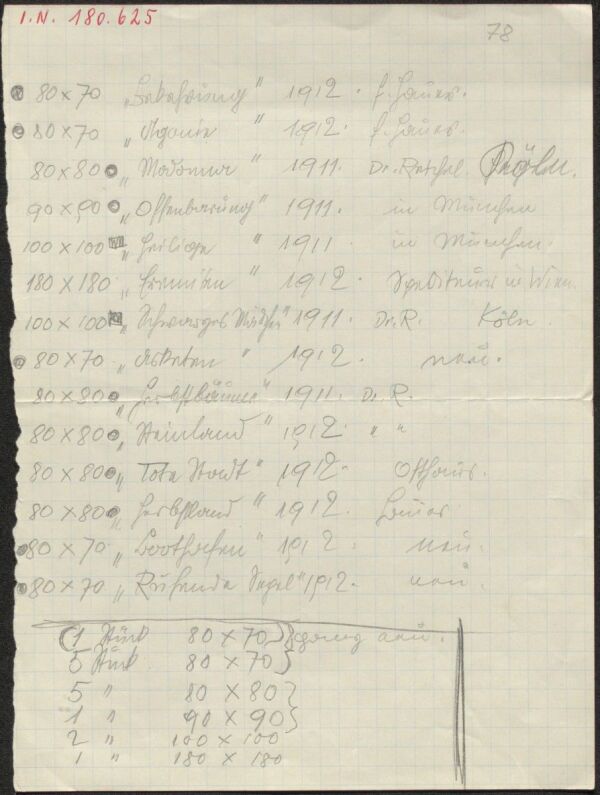 I.N. 180.625
78
80 x 70 „Bekehrung" 1912. f. Hauer.
80 x 70 „Agonie" 1912. f. Hauer.
80 x 80 „Madonna" 1911. Dr. Reichel.
90 x 90 „Offenbarung" 1911. in München
100 x 100 „Heilige" 1911 in München.
180 x 180 „Eremiten" 1912. Spediteur in Wien.
100 x 100 „Schwarzes Mädchen" 1911. Dr. R. Köln.
80 x 70 „Asketen" 1912. neu.
80 x 80 „Herbstbäume" 1911. Dr. R.
80 x 80 „Steinland" 1912. " "
80 x 80 „Tote Stadt" 1912. Osthaus.
80 x 80 „Herbstland" 1912. Hauer
80 x 70 „Boothafen" 1912. neu.
80 x 70 „Rufende Segel" 1912. neu.
(1 Stück 80 x 70)} ganz neu.
5 Stück 80 x 70}
5 " 80 x 80}
1 " 90 x 90}
2 " 100 x 100
1 " 180 x 180